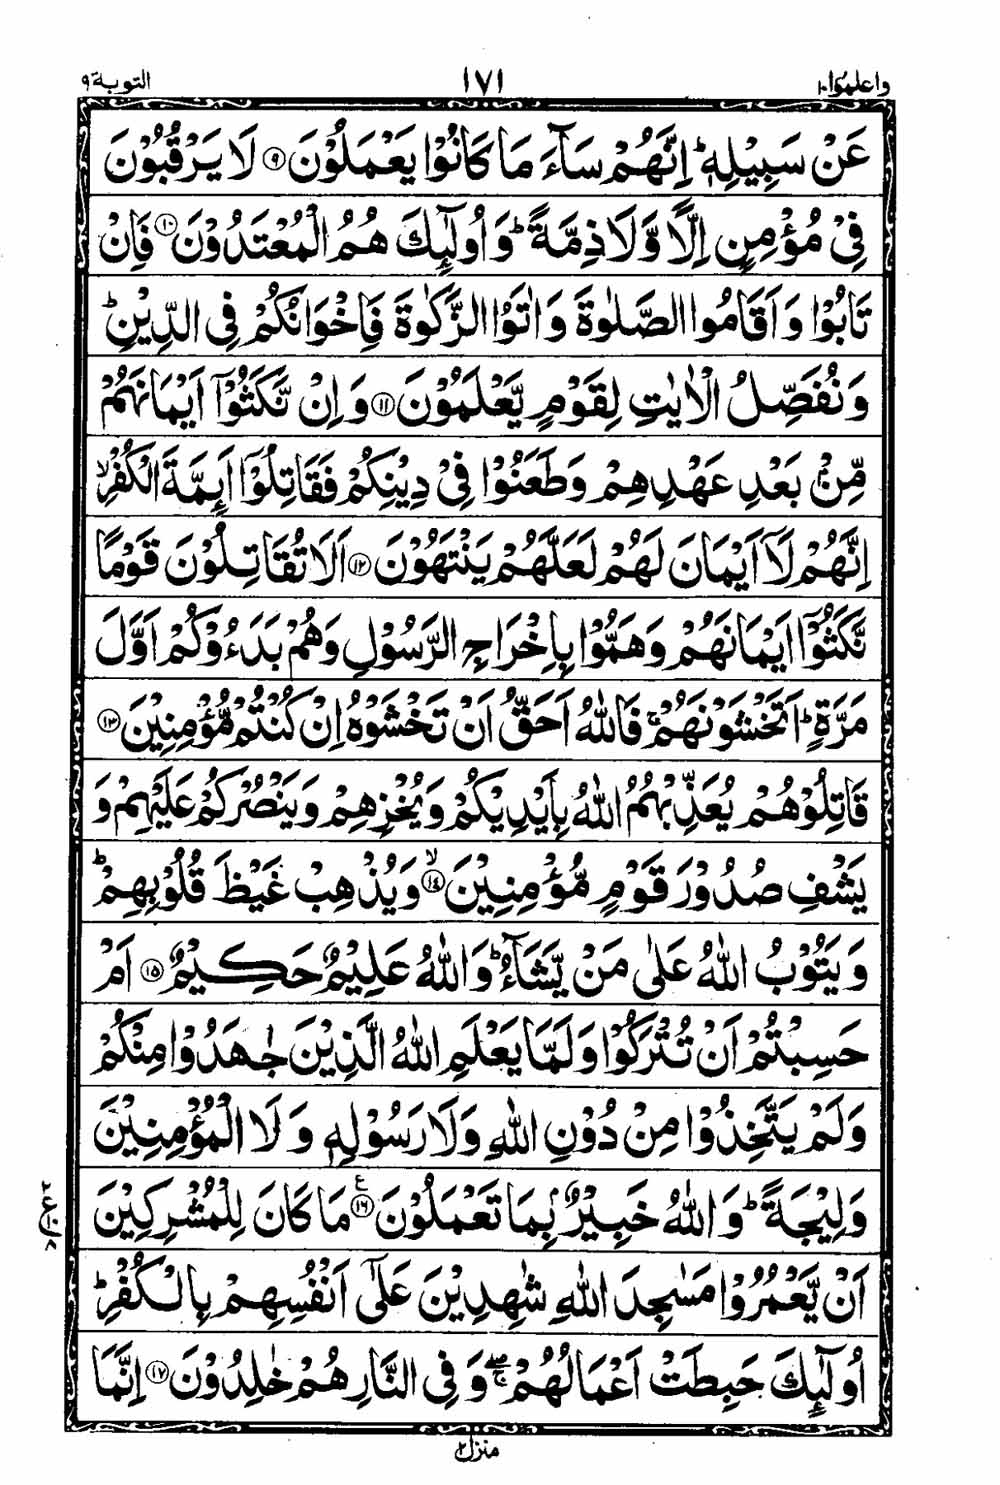 واعلموا١٠ ١٧١ التوبة٩
عَنْ سَبِيْلِهٖ ؕ اِنَّهُمْ سَآءَ مَا كَانُوْا يَعْمَلُوْنَ ۹ لَا يَرْقُبُوْنَ
فِيْ مُؤْمِنٍ اِلًّا وَّلَا ذِمَّةً ؕ وَ اُولٰٓئِكَ هُمُ الْمُعْتَدُوْنَ ۱۰ فَاِنْ
تَابُوْا وَ اَقَامُوا الصَّلٰوةَ وَ اٰتَوُا الزَّكٰوةَ فَاِخْوَانُكُمْ فِي الدِّيْنِ ؕ
وَ نُفَصِّلُ الْاٰيٰتِ لِقَوْمٍ يَّعْلَمُوْنَ ۱۱ وَ اِنْ نَّكَثُوْۤا اَيْمَانَهُمْ
مِّنْۢ بَعْدِ عَهْدِهِمْ وَ طَعَنُوْا فِيْ دِيْنِكُمْ فَقَاتِلُوْۤا اَئِمَّةَ الْكُفْرِ ۙ
اِنَّهُمْ لَاۤ اَيْمَانَ لَهُمْ لَعَلَّهُمْ يَنْتَهُوْنَ ۱۲ اَلَا تُقَاتِلُوْنَ قَوْمًا
نَّكَثُوْۤا اَيْمَانَهُمْ وَهَمُّوْا بِاِخْرَاجِ الرَّسُوْلِ وَهُمْ بَدَءُوْكُمْ اَوَّلَ
مَرَّةٍ ؕ اَتَخْشَوْنَهُمْ ۚ فَاللّٰهُ اَحَقُّ اَنْ تَخْشَوْهُ اِنْ كُنْتُمْ مُّؤْمِنِيْنَ ۱۳
قَاتِلُوْهُمْ يُعَذِّبْهُمُ اللّٰهُ بِاَيْدِيْكُمْ وَيُخْزِهِمْ وَيَنْصُرْكُمْ عَلَيْهِمْ وَ
يَشْفِ صُدُوْرَ قَوْمٍ مُّؤْمِنِيْنَ ۱۴ۙ وَيُذْهِبْ غَيْظَ قُلُوْبِهِمْ ؕ
وَ يَتُوْبُ اللّٰهُ عَلٰى مَنْ يَّشَآءُ ؕ وَاللّٰهُ عَلِيْمٌ حَكِيْمٌ ۱۵ اَمْ
حَسِبْتُمْ اَنْ تُتْرَكُوْا وَ لَمَّا يَعْلَمِ اللّٰهُ الَّذِيْنَ جٰهَدُوْا مِنْكُمْ
وَلَمْ يَتَّخِذُوْا مِنْ دُوْنِ اللّٰهِ وَلَا رَسُوْلِهٖ وَ لَا الْمُؤْمِنِيْنَ
وَلِيْجَةً ؕ وَ اللّٰهُ خَبِيْرٌۢ بِمَا تَعْمَلُوْنَ ۱۶ع مَا كَانَ لِلْمُشْرِكِيْنَ
اَنْ يَّعْمُرُوْا مَسٰجِدَ اللّٰهِ شٰهِدِيْنَ عَلٰۤى اَنْفُسِهِمْ بِالْكُفْرِ ؕ
اُولٰٓئِكَ حَبِطَتْ اَعْمَالُهُمْ ۖۚ وَ فِي النَّارِ هُمْ خٰلِدُوْنَ ۱۷ اِنَّمَا
منزل٢